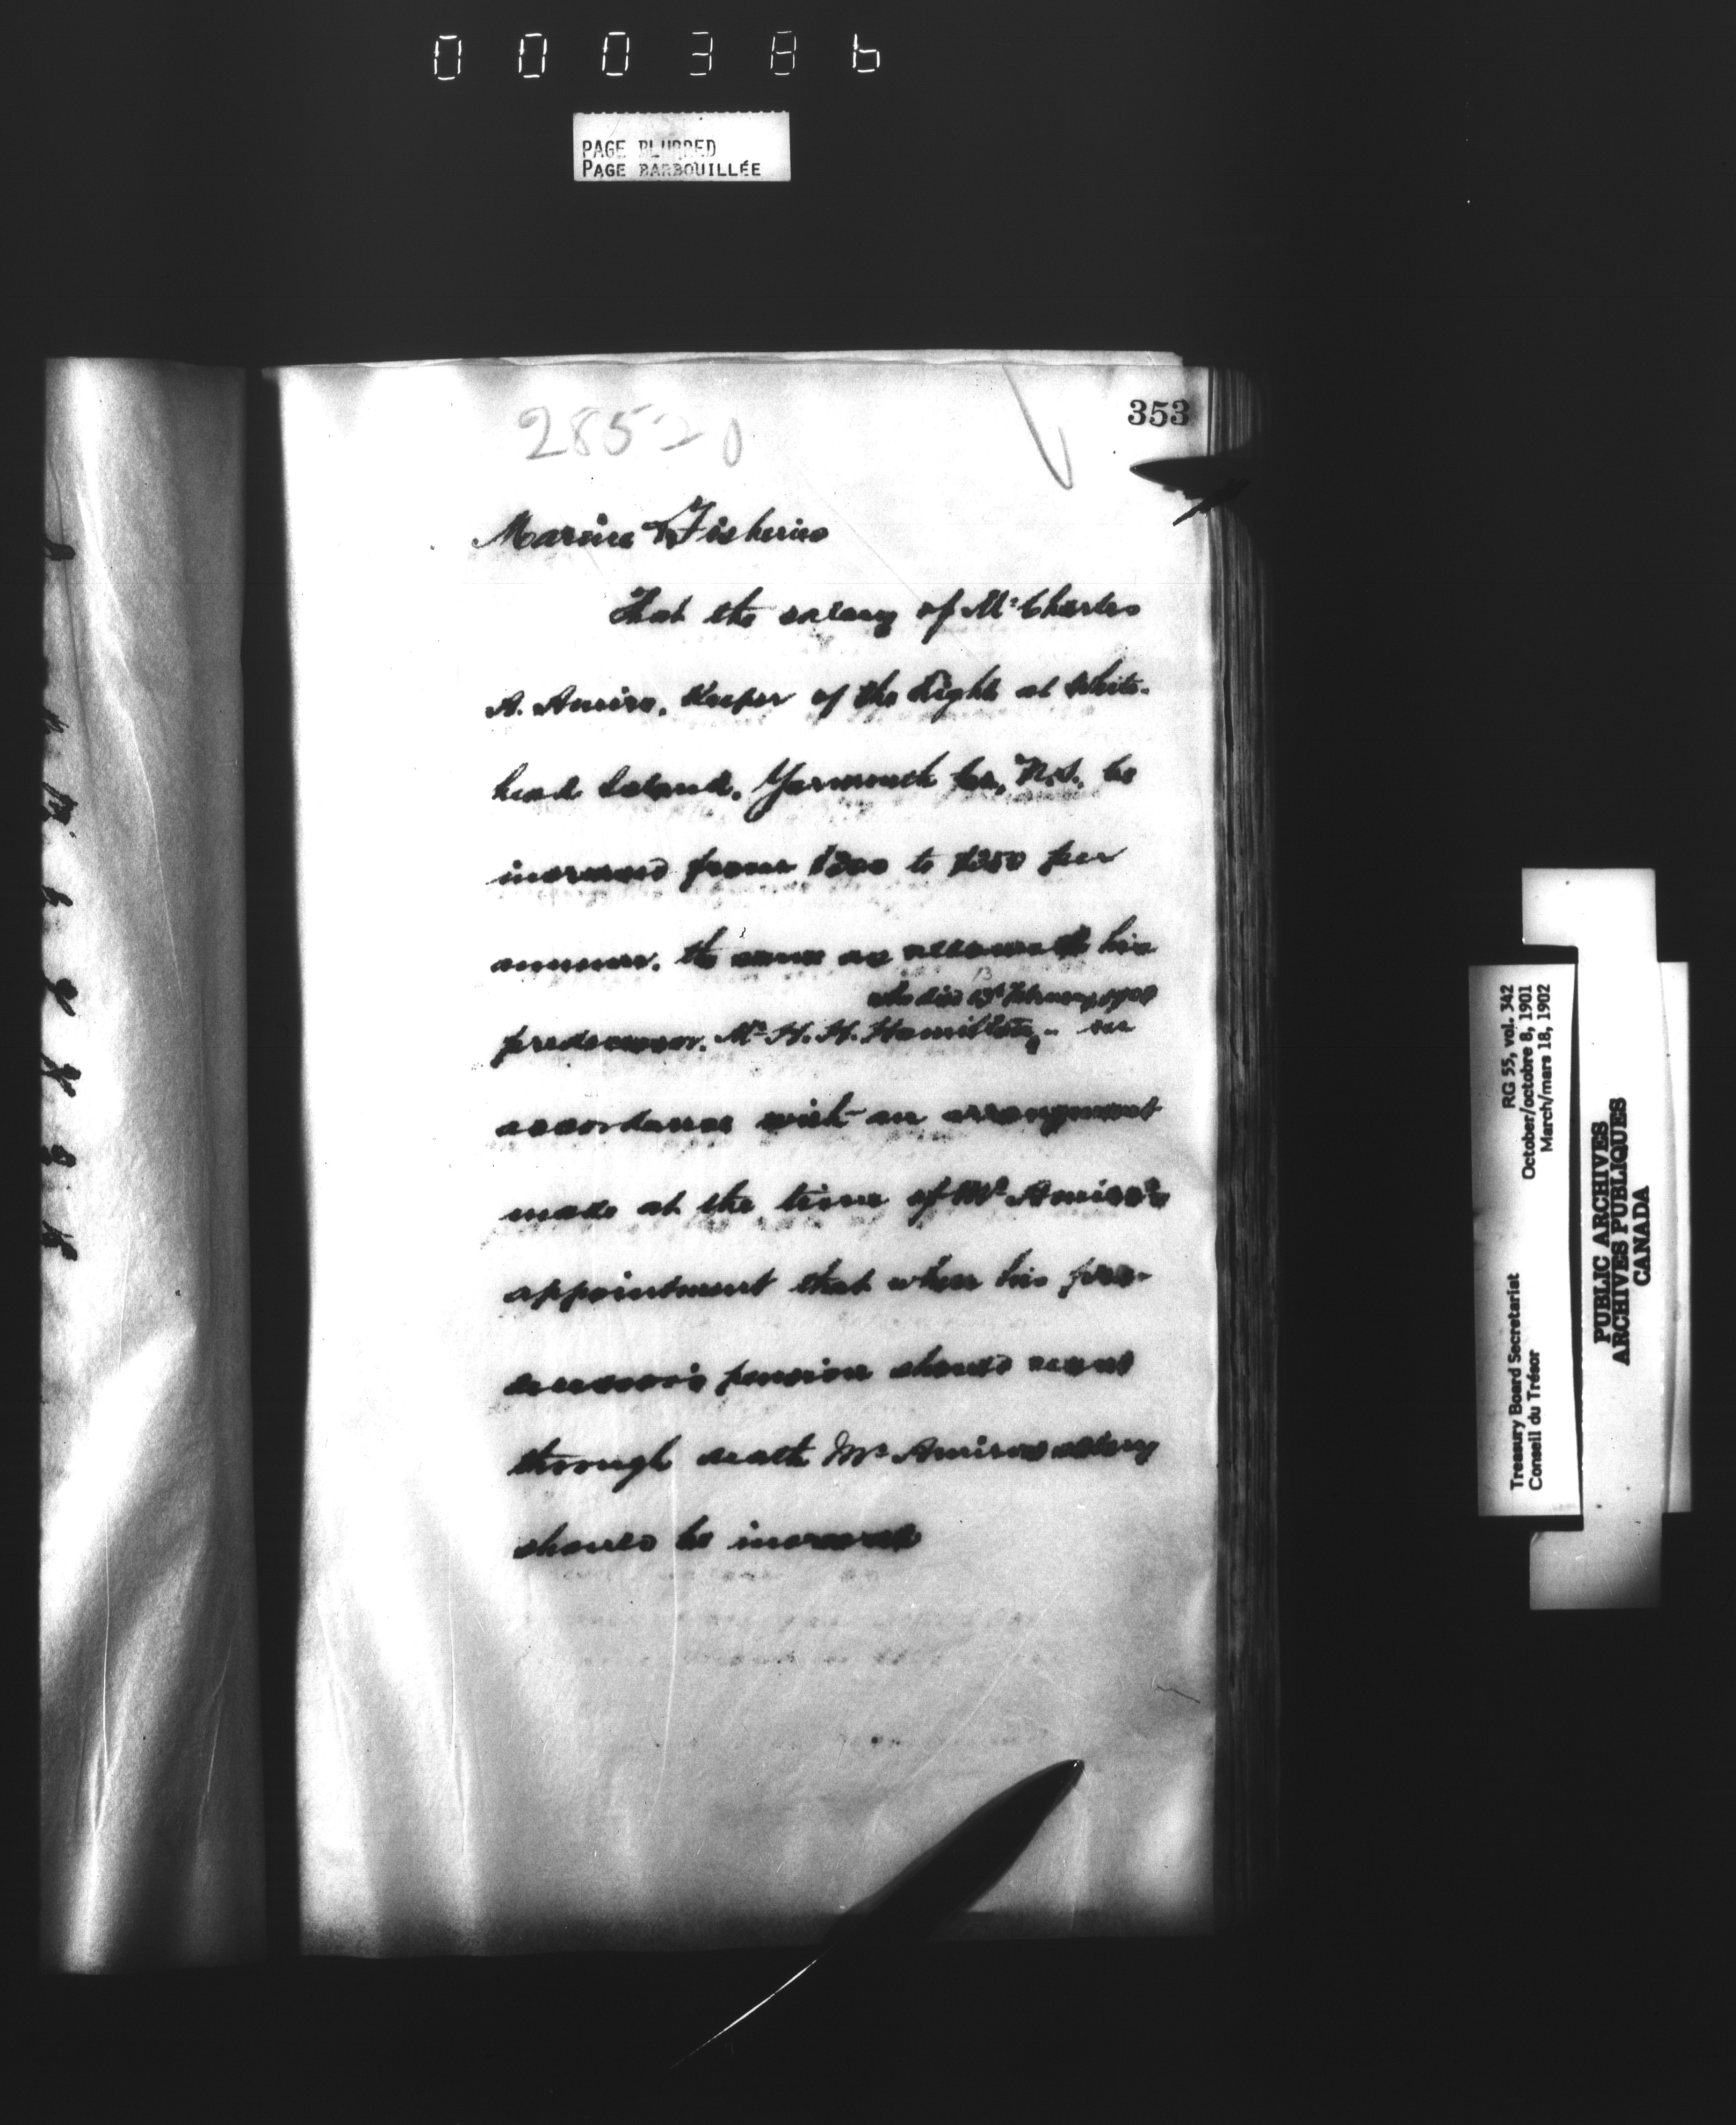 000386
PAGE BLURRED
PAGE BARBOUILLÉE
353
28520
Marine & Fisheries
That the salary of Mr Charles
A. Amiro, Keeper of the Light at White-
head Island, Yarmouth Co., N.S. be
increased from $200 to $250 per
annum, the same as allowed his
who died 13 February
predecessor, Mr H. H. Hamilton, in
accordance with an arrangement
made at the time of Mr Amiro's
appointment that when his pre-
decessor's pension should cease
through death Mr Amiro's salary
should be increased
RG 55, vol. 342
October/octobre 8, 1901
March/mars 18, 1902
Treasury Board Secretariat
Conseil du Trésor
PUBLIC ARCHIVES
ARCHIVES PUBLIQUES
CANADA